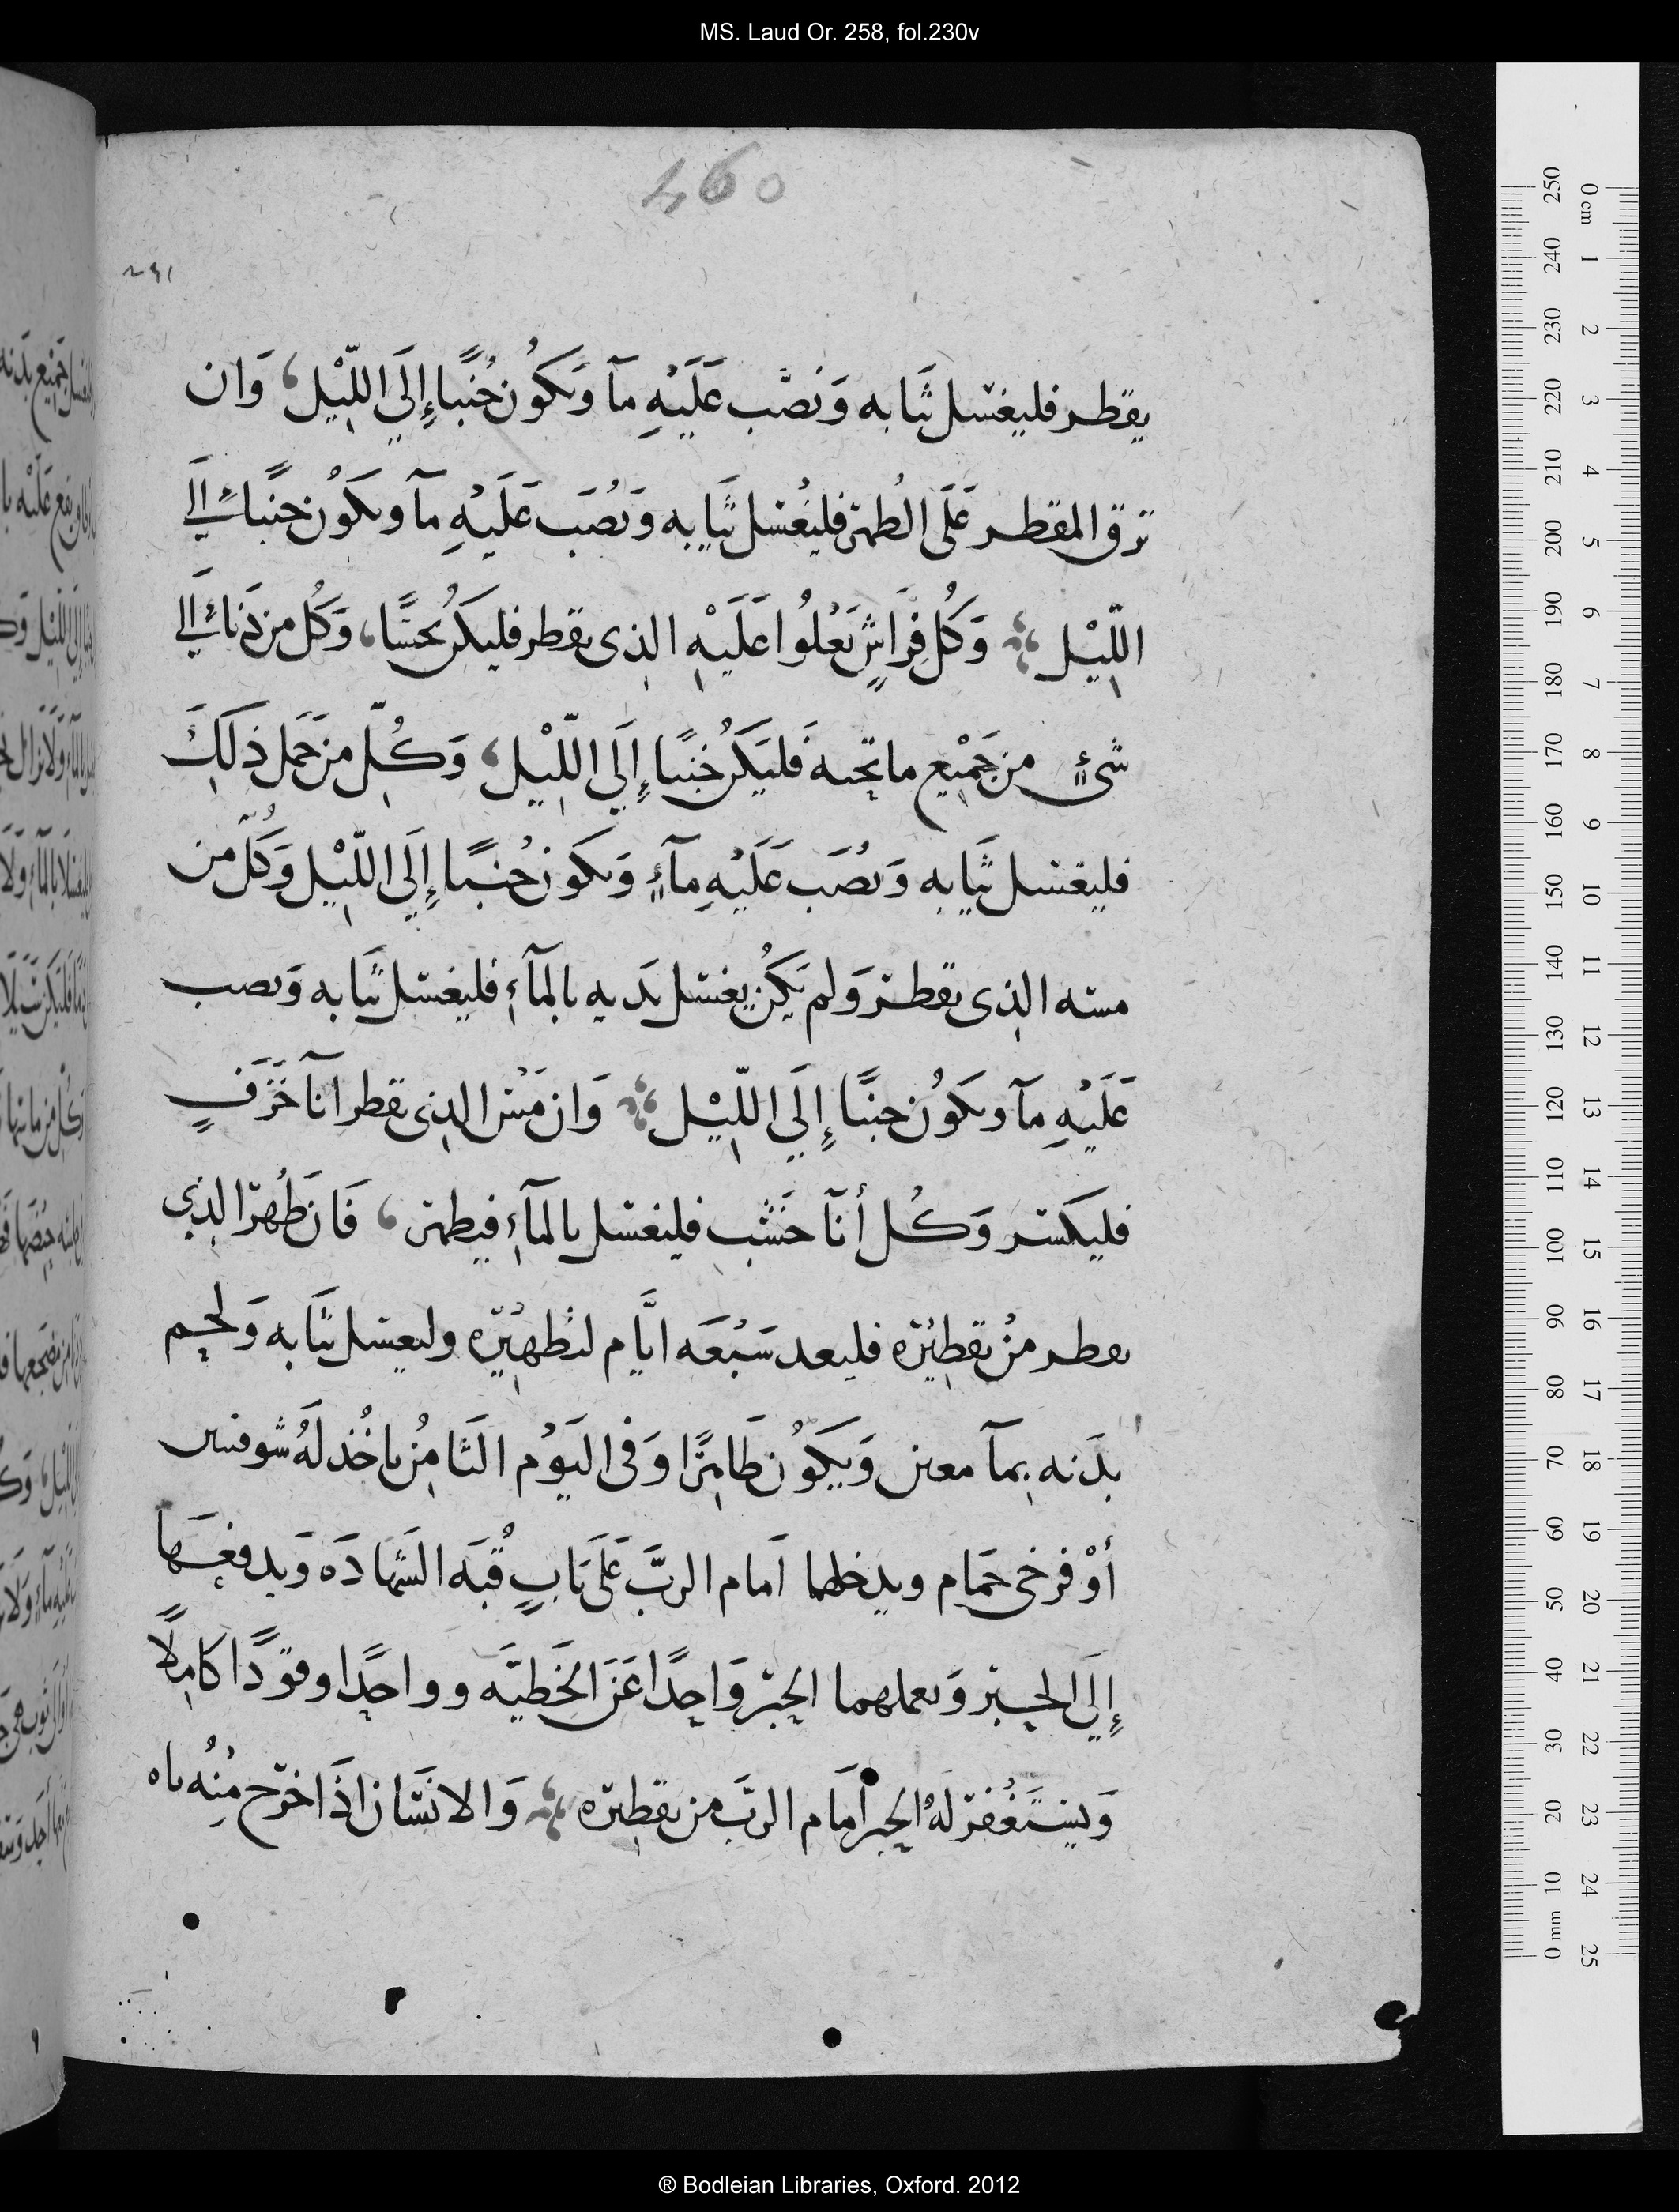 MS. Laud Or. 258, fol.230v
460
يقطر فليغسل ثَيابه وَنصَّب عَلَيْهِ مآ وَيكوُن جُنبًا إِلَي اللّيْل، وَان
ترق المقطر عَلَى الطُهر فليغُسل ثَيابه وَنصُبَ عَلَيْهِ مآ ويكَوُن جنبًا إِلَي
اللّيْل وَكُل فِرَاشٍ يَعْلُوا عَلَيْهِ الذى يقطر فليكَن نجسًا، وَكُل من دَنا إِلَي
شىءٍ من جَمْيع ما تحته فَليَكُن جُنبًا إِلَي اللّيْل، وَكُلّ من حَمَل ذلَكَ
فليغسل ثيَابه وَنصُبَ عَلَيْهِ مآءٍ وَيكَون جُنبًا إِلَي اللّيْل وَكُلّ من
مسه الذى يقطر وَلم يَكُن يغسل يدَيه بالمآءِ فليغسل ثيَابه وَيصب
عَلَيْهِ مآ ويكَوُن جنبًا إِلَي اللّيْل وَان مَسْ الذى يقطر انآ خَزَفٍ
فليكسر وَكُل أنآ خَشَب فليغسل بالمآءِ فيطهر، فَان طُهر الذي
يقطر منْ تقطيْره فليعد سَبْعَه ايَّام لتُطهيْره وليغسل ثيَابه وَلحم
بدَنه بمآ معين وَيكَوُن طَاهرًا وَفى اليَوُم الثامنُ ياخُذ لَهُ شوفنين
أوْ فرخى حَمام ويدخلهما اَمام الربَّ عَلَى بَابٍ قُبَه الشَهادَه وَيدفعَها
إِلَي الحبر وَيعملهما الحبر وَاحِدًا عَن الخَطيَّه وواحِدًا وقودًا كامِلاً
وَيسْتَغُفر لَهُ الحبر اَمَام الربَّ من تقطيره وَالانسَان اذَا خرَج مِنْهُ ماه
0 cm 1 2 3 4 5 6 7 8 9 10 11 12 13 14 15 16 17 18 19 20 21 22 23 24 25
250 240 230 220 210 200 190 180 170 160 150 140 130 120 110 100 90 80 70 60 50 40 30 20 10 0 mm
® Bodleian Libraries, Oxford. 2012